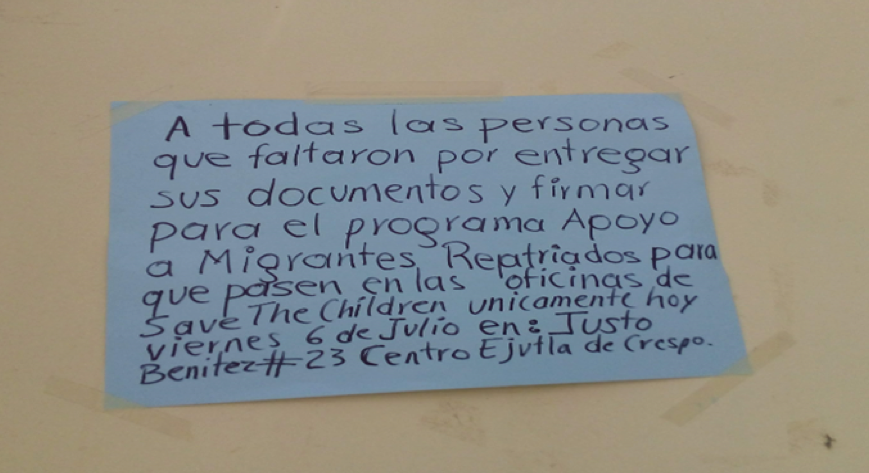 A todas las personas
que faltaron por entregar
sus documentos y firmar
para el programa Apoyo
a Migrantes Reptriados para
que pasen en las oficinas de
Save The Children unicamente hoy
viernes 6 de Julio en: Justo
Benitez #23 Centro Ejutla de Crespo.